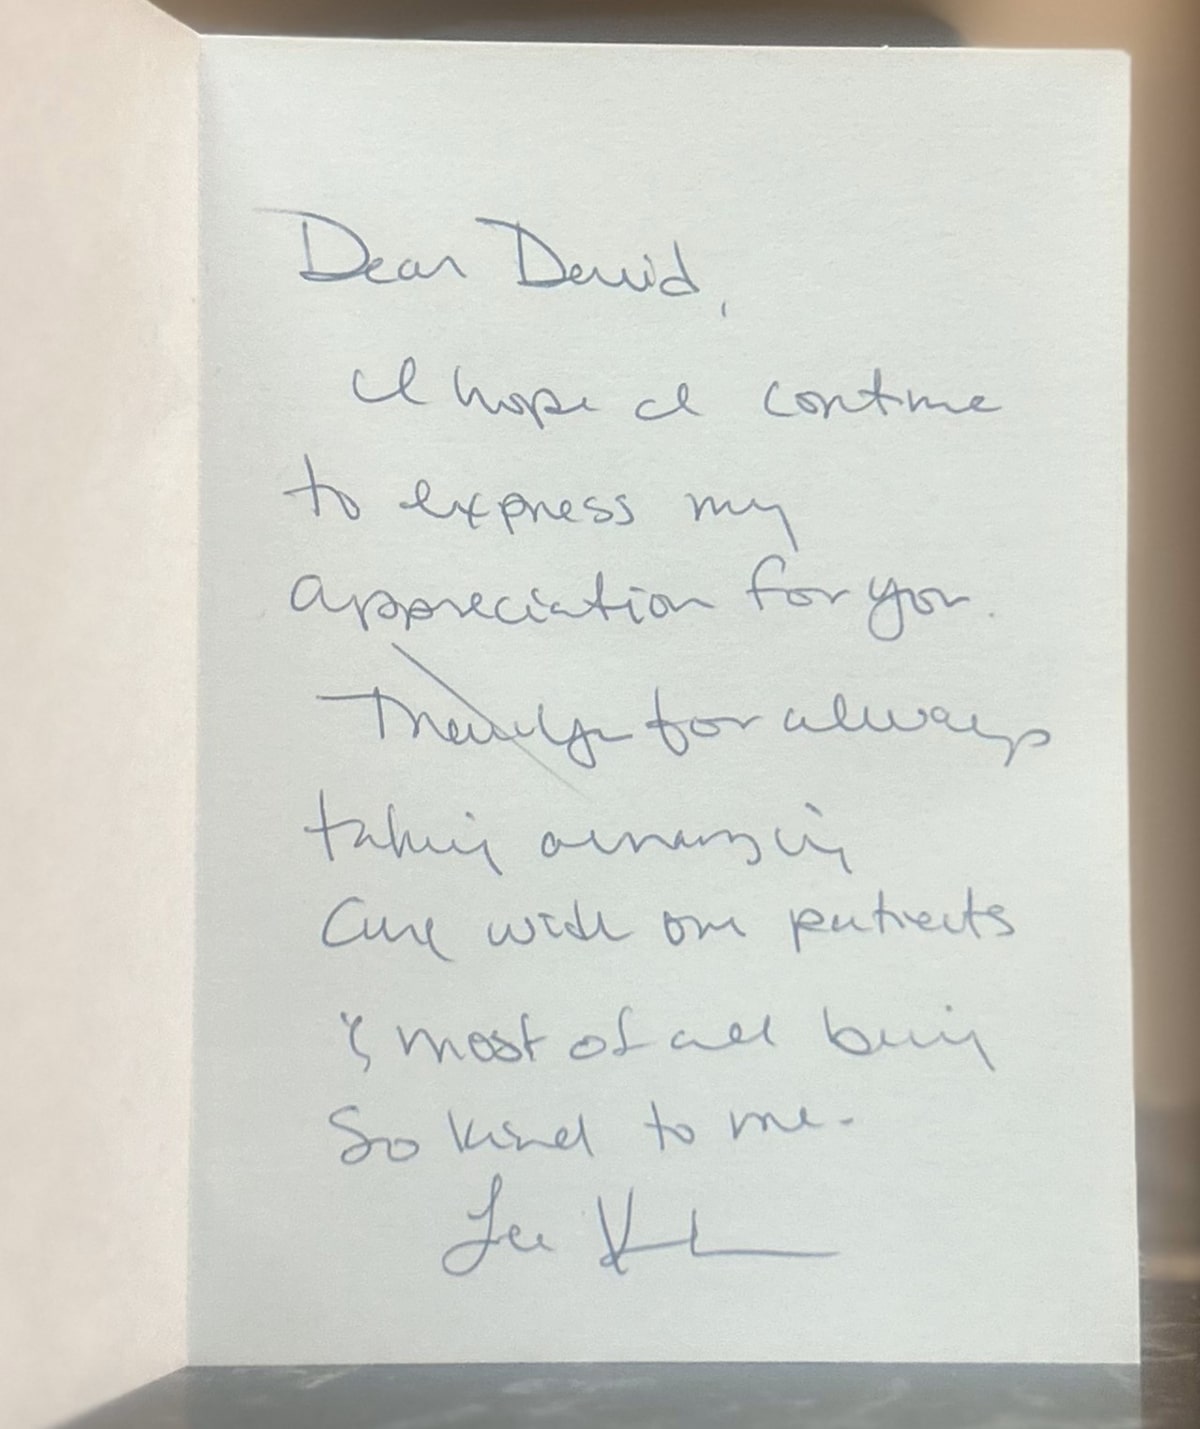 Dear David,
I hope I continue
to express my
appreciation for you.
Thank you for always
taking amazing
care with our patients
& most of all being
so kind to me.
Lee